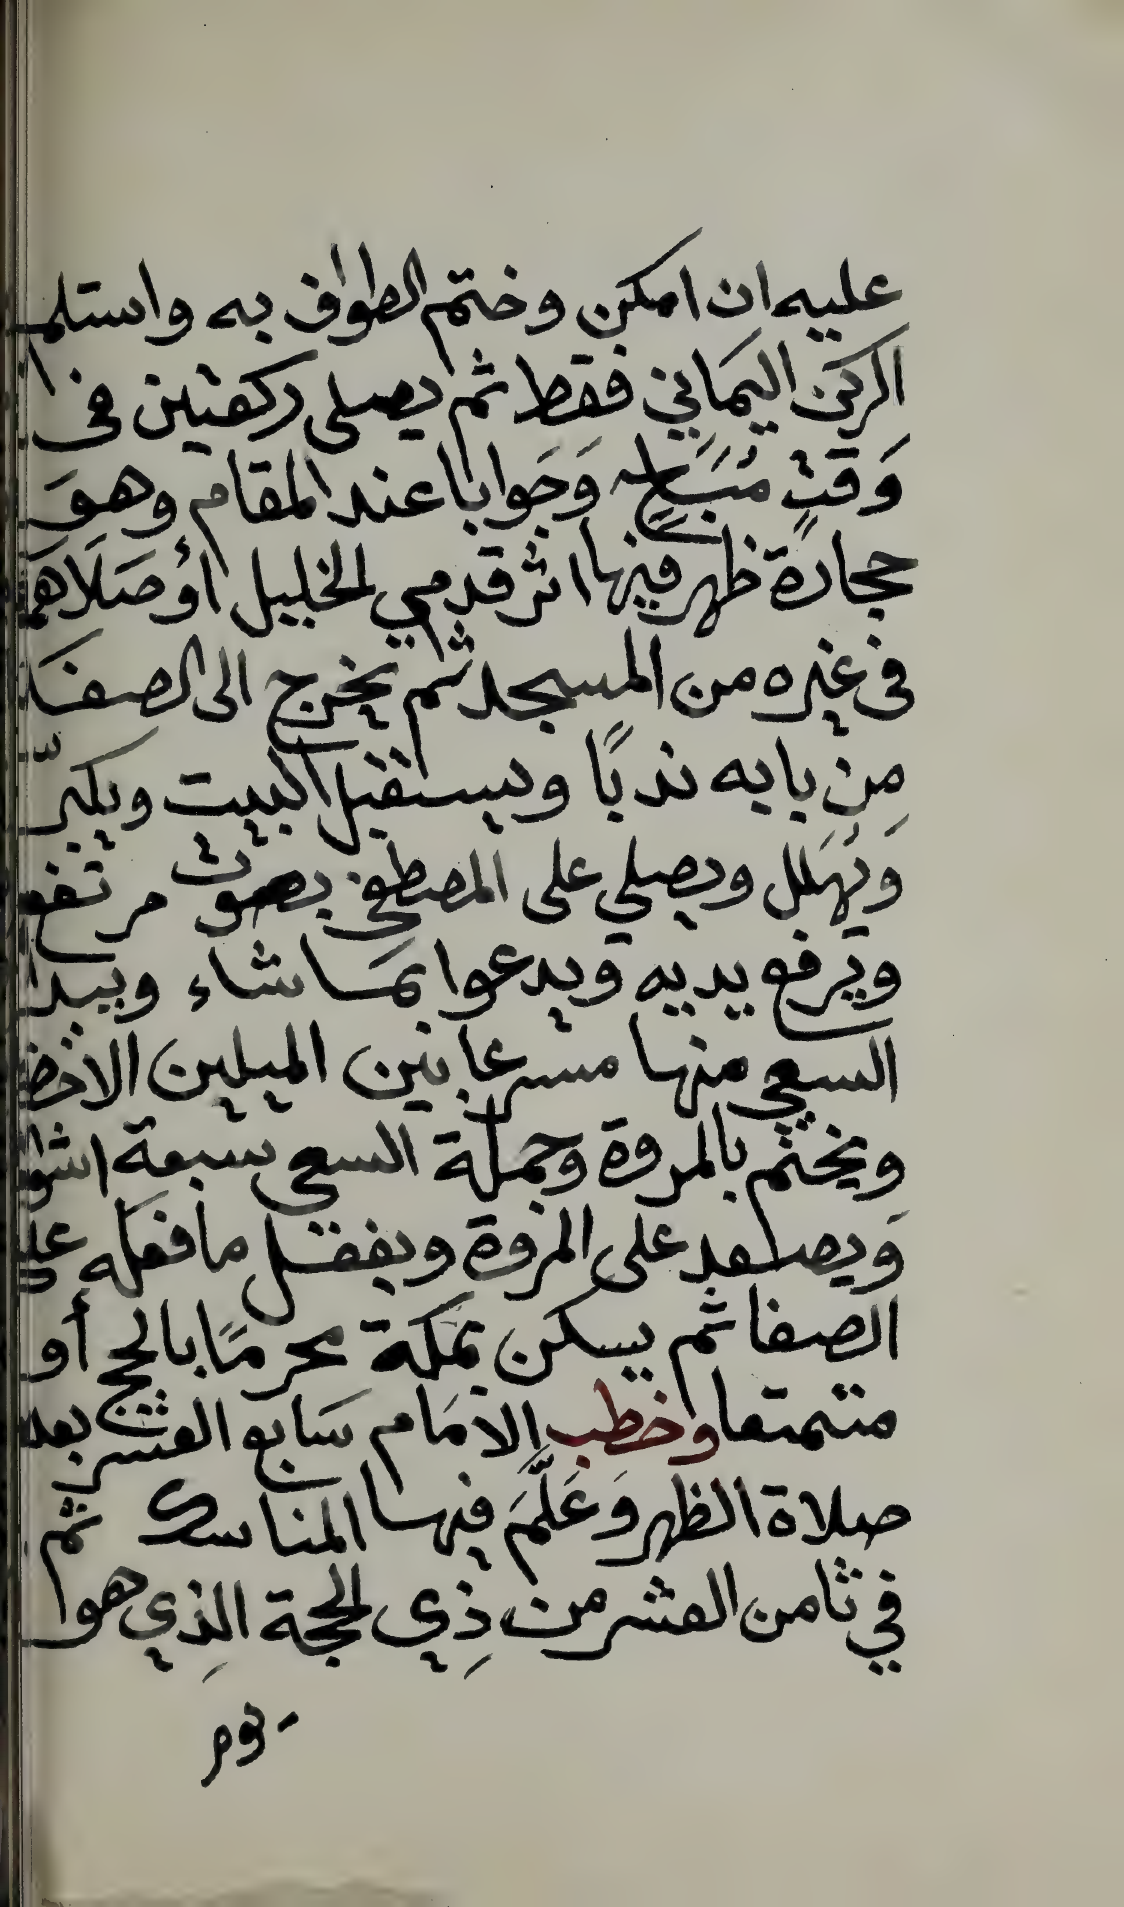 عليه ان امكن وختم الطواف به واستلم
الركن اليَماني فقط ثم يصلي ركعتين في
وَقتٍ مُبَاحٍ وَجَوابا عند المقام وهوَ
حجارة ظهر فيها اثر قدمي الخليل أوصَلاهما
في غيره من المسجد ثم يخرج الى الصفَا
مِن بابه ندبًا ويستقبل البيت ويكبّر
وَيُهَلل ويصلي على المصطفى بصوت مرتفع
ويَرفع يديه وَيدعوا بمَا شاء ويبدا
السعي منها مسرعا بين الميلين الاخضر
ويختم بالمروة وَجملة السعي سبعة اشواط
وَيصعد على المروة ويفعل ما فعَله على
الصفا ثم يسكن بمَكة محرمًا بالحج أو
متمتعا وخطب الامَام سَابع العشر بعد
صلاة الظهر وَعَلَّمَ فيها المناسك ثم
في ثامن العشر من ذِي الحجة الذِي هو
يوم